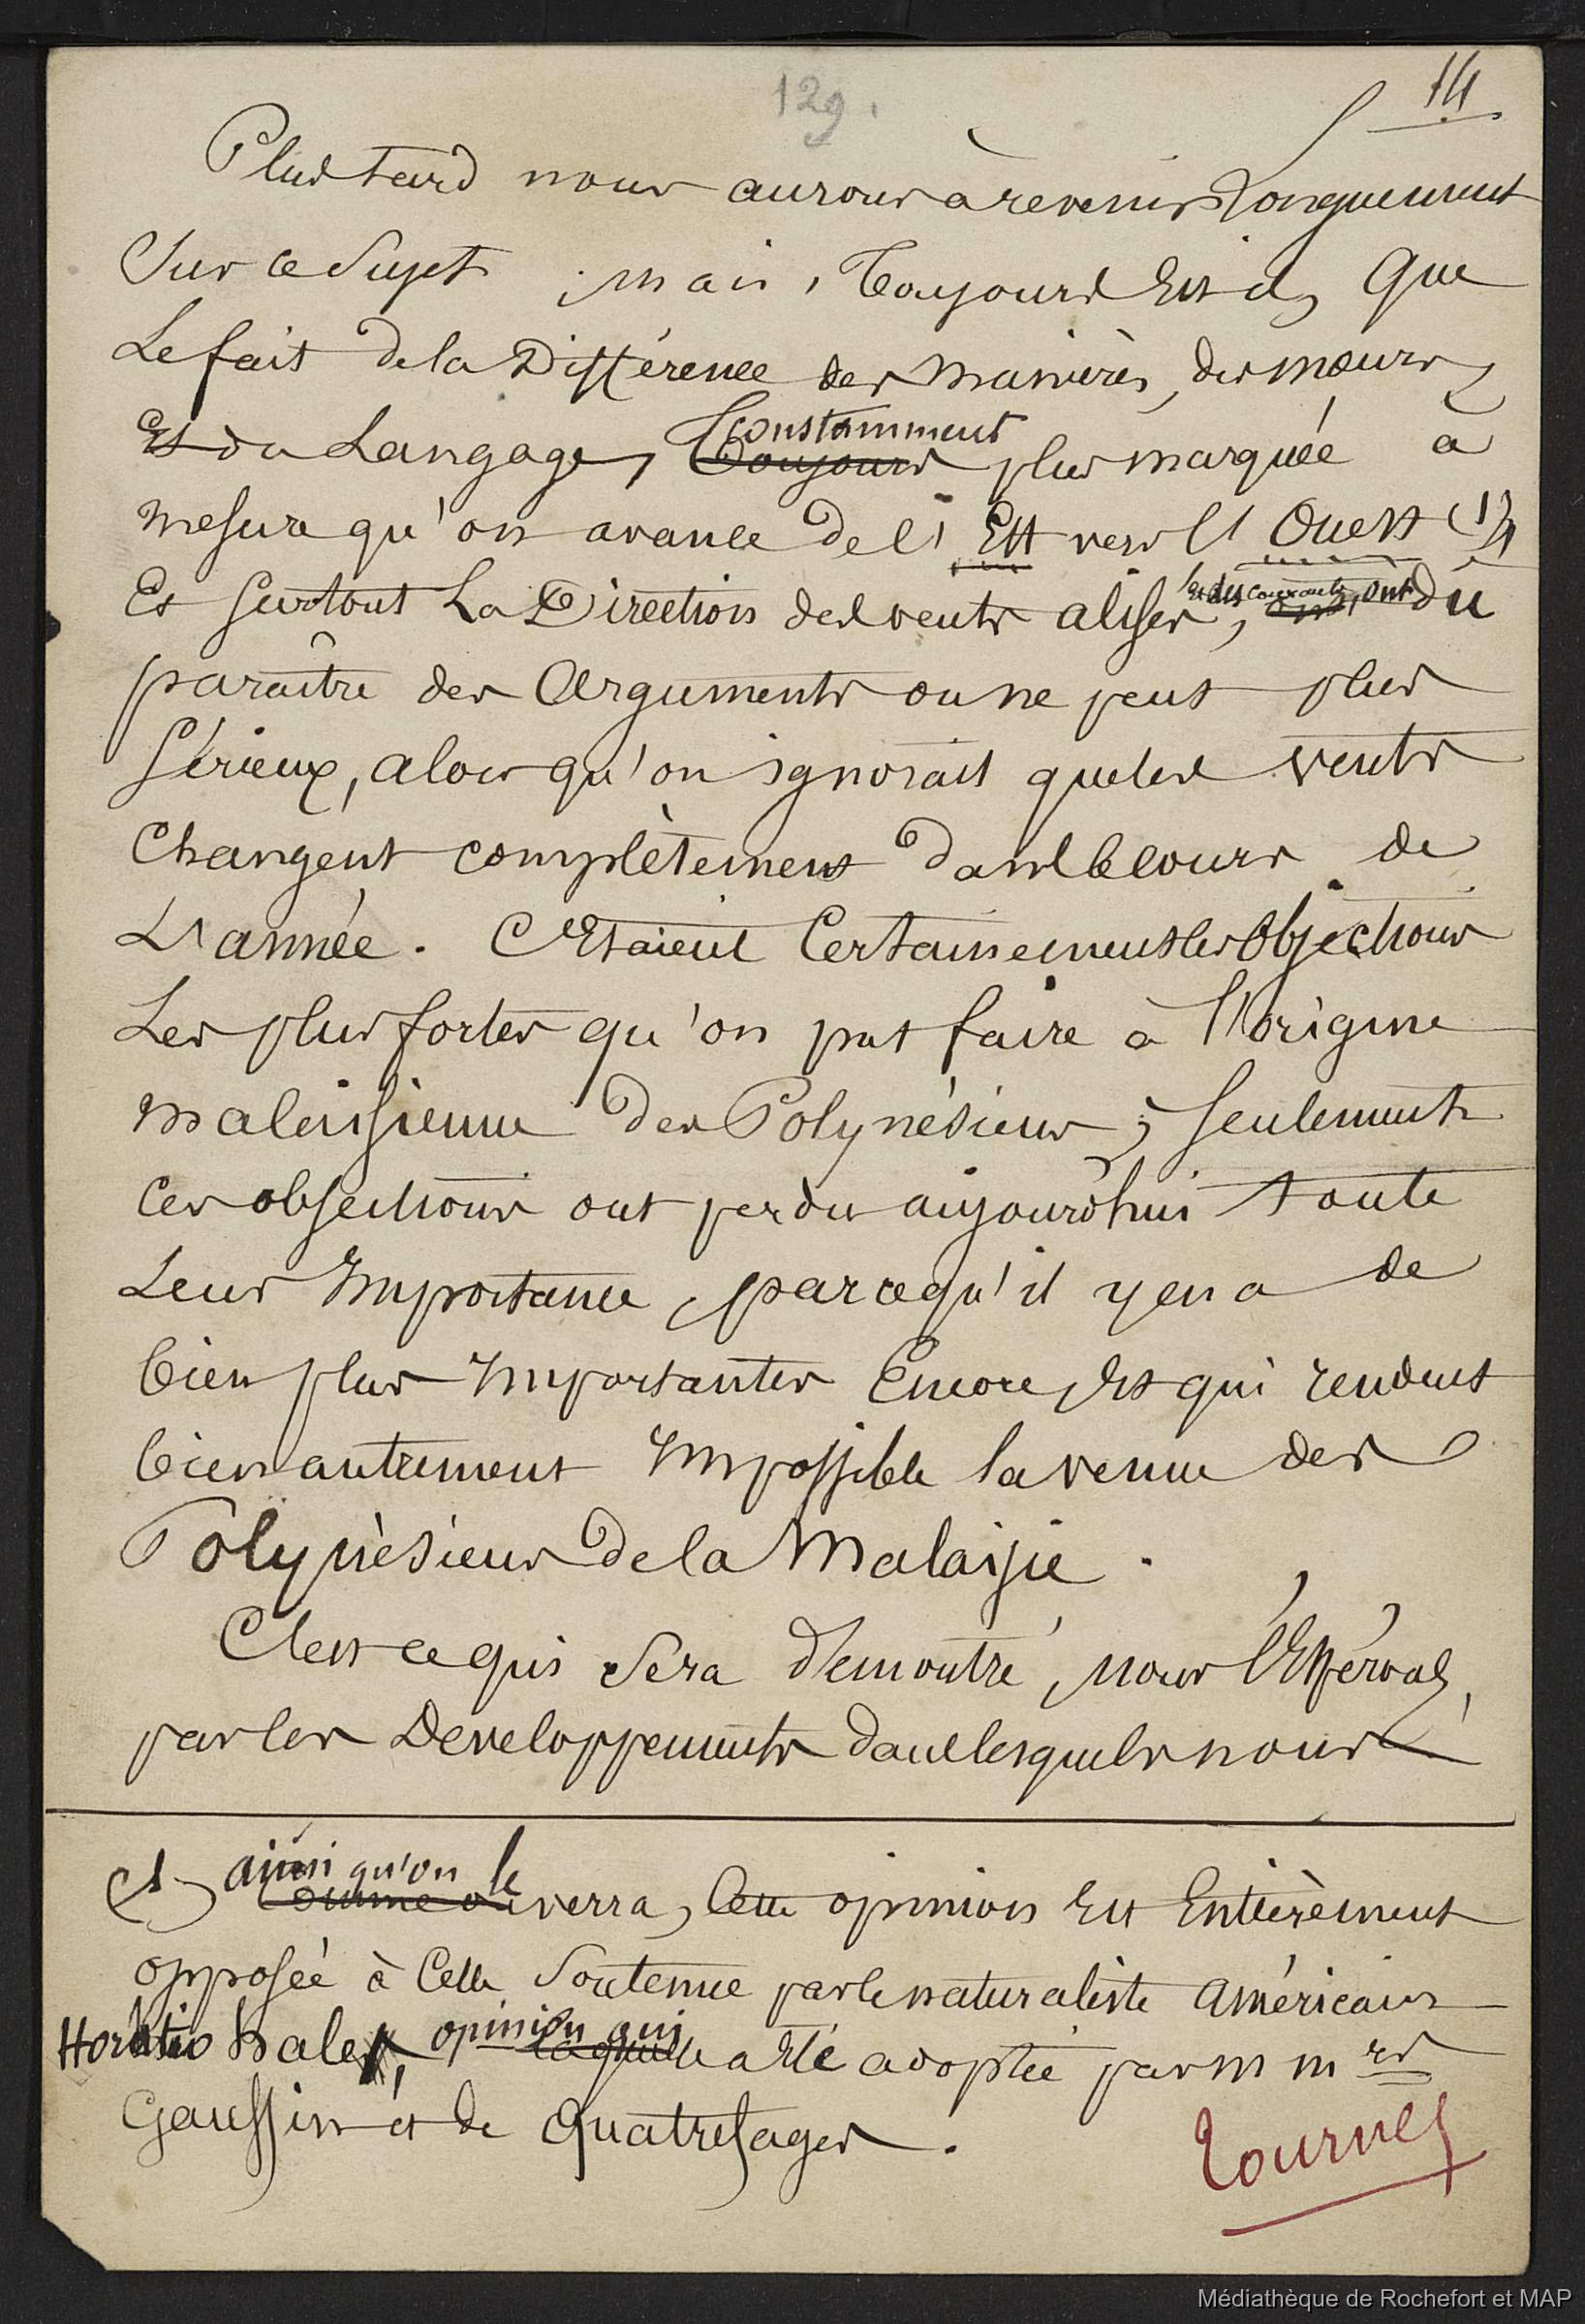 129.
14
Plus tard nous aurons à revenir longuement
sur ce sujet ; mais, toujours est-il, que
le fait de la différence des manières, des moeurs,
et du langage, constamment
toujours plus marquée à
mesure qu'on avance de l'Est vers l'Ouest (1),
et surtout la direction des vents alisés, et des courants, ont dû
paraître des arguments on ne peut plus
sérieux, alors qu'on ignorait que les vents
changent complètement dans le cours de
l'année. C'étaient certainement les objections
les plus fortes qu'on put faire à l'origine
malaisienne des Polynésiens ; seulement
ces objections ont perdu aujourd'hui toute
leur importance, parce qu'il y en a de
bien plus importantes encore, et qui rendent
bien autrement impossible la venue des
Polynésiens de la Malaisie.
C'est ce qui sera démontré, nous l'espérons,
par les developpements dans lesquels nous
(1) ainsi qu'on le
comme on verra, cette opinion est entièrement
opposée à celle soutenue par le naturaliste américain
Horatio hale, opinion qui
laquelle a été adoptée par m mrs
Gaussin et de Quatrefages.
Tournez
Médiathèque de Rochefort et MAP